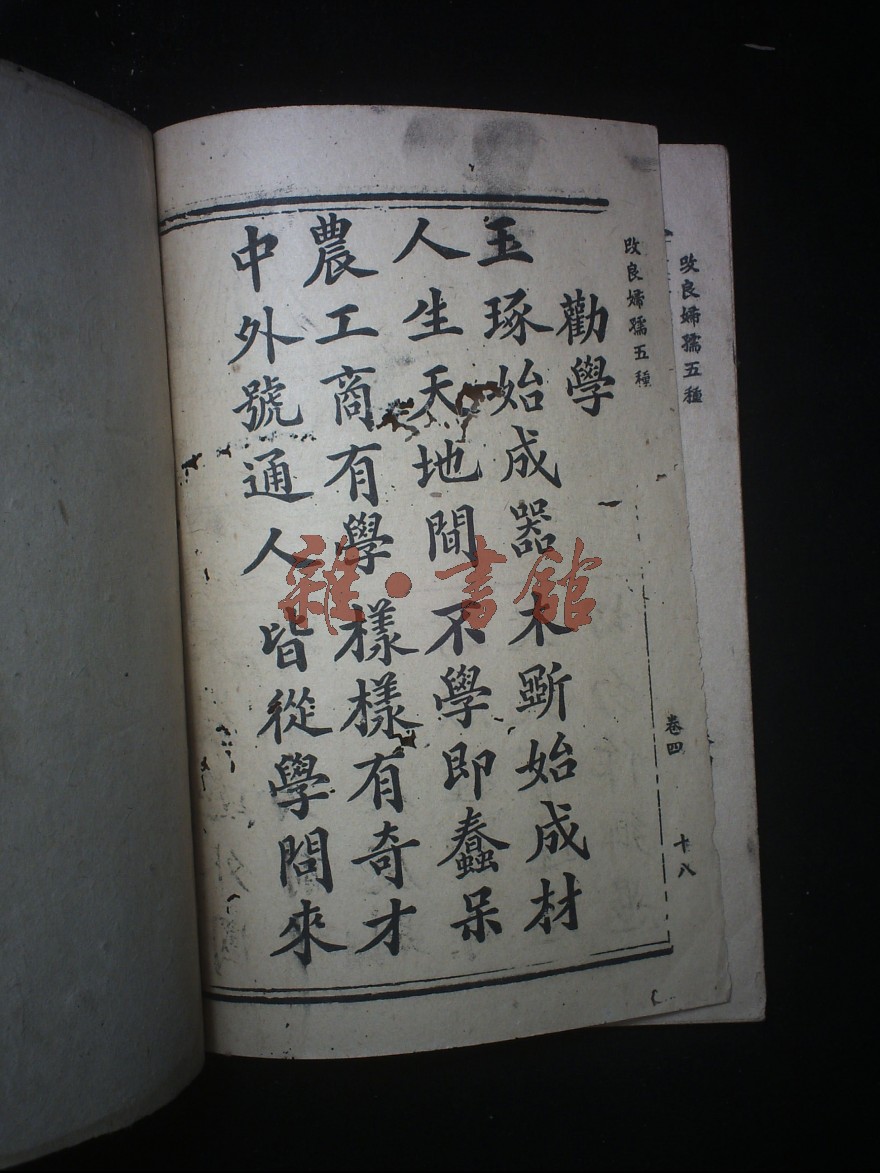 改良婦孺五種
改良婦孺五種
卷四
十八
勸學
玉琢始成器木斲始成材
人生天地間不學即蠢呆
農工商有學樣樣有奇才
中外號通人皆從學問來
雜·書館